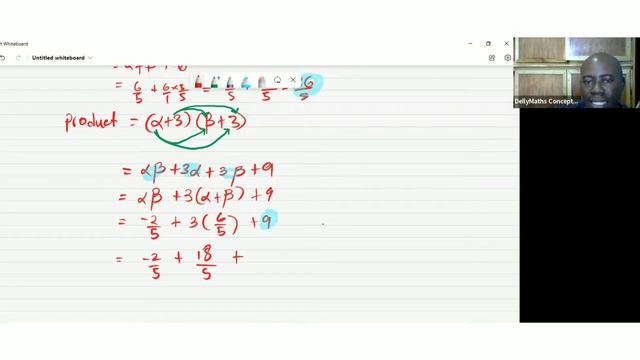 Whiteboard
Untitled whiteboard
DellyMaths Concept...
= 6/5 + 6/1 × 5/5 =
product = (α+3)(β+3)
= αβ + 3α + 3β + 9
= αβ + 3(α+β) + 9
= -2/5 + 3(6/5) + 9
= -2/5 + 18/5 +